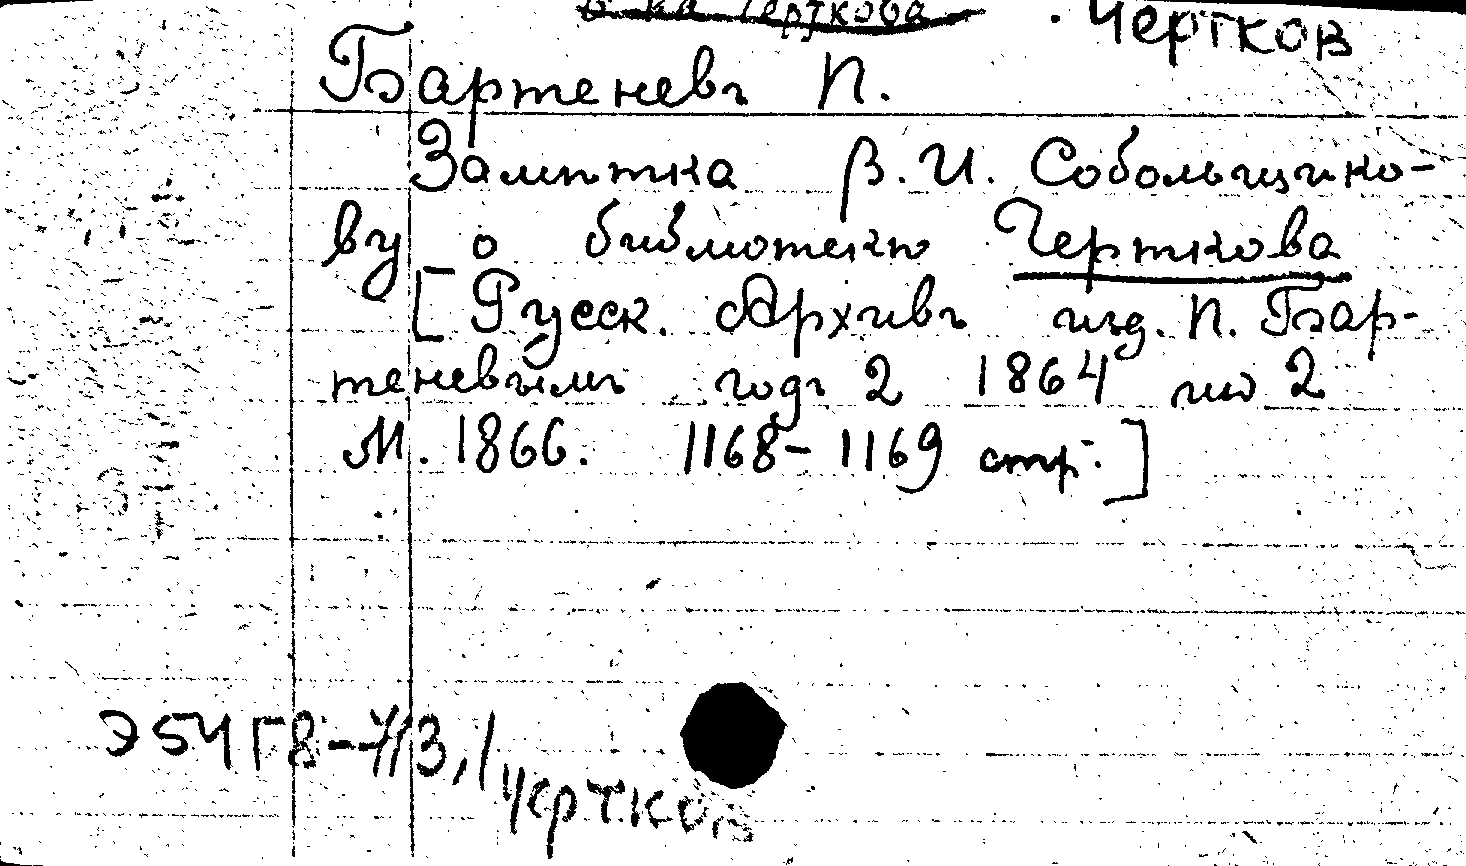 Б-ка Черткова
Чертков
Бартеневъ П.
Замѣтка В. И. Собольщико-
ву о библіотекѣ Черткова
[Русск. Архивъ изд. П. Бар-
теневымъ годъ 2 1864 изд 2
М. 1866. 1168-1169 стр.]
Э54Г8-
Чертков